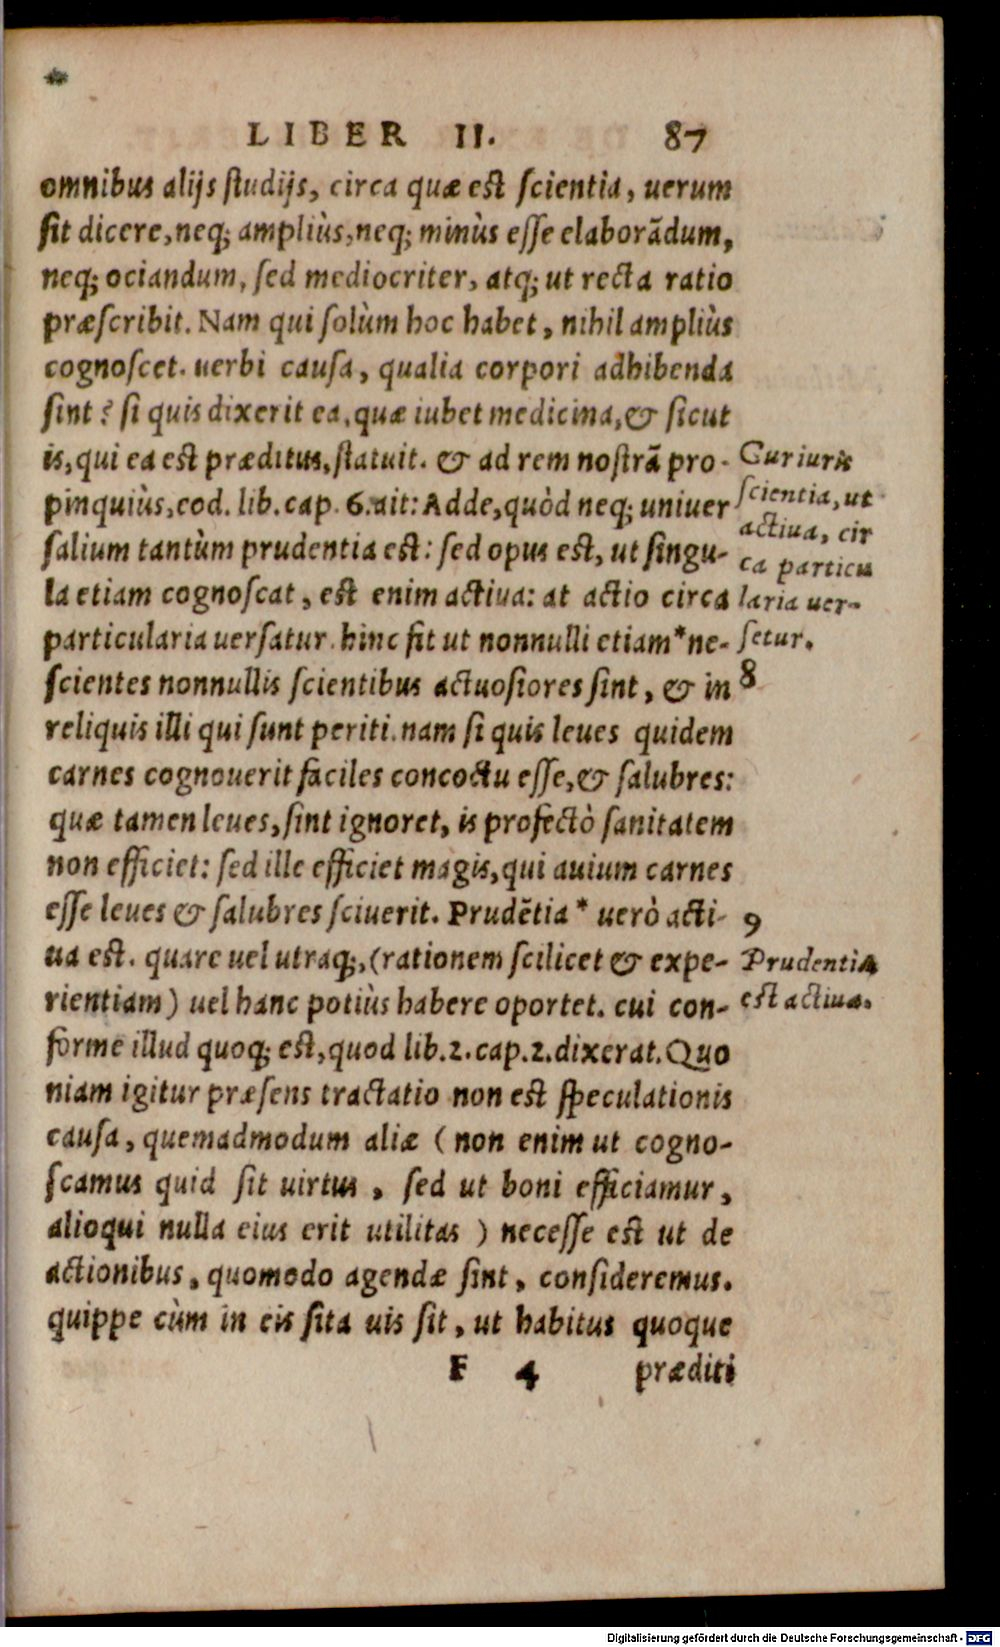 LIBER II. 87
omnibus alijs ſtudijs, circa quæ eſt ſcientia, uerum
ſit dicere, neq; ampliùs, neq; minùs eſſe elaborãdum,
neq; ociandum, ſed mediocriter, atq; ut recta ratio
præſcribit. Nam qui ſolùm hoc habet, nihil ampliùs
cognoſcet. uerbi cauſa, qualia corpori adhibenda
ſint? ſi quis dixerit ea, quæ iubet medicina, & ſicut
is, qui ea eſt præditus, ſtatuit. & ad rem noſtrã pro-
pinquiùs, eod. lib. cap. 6. ait: Adde, quòd neq; uniuer
ſalium tantùm prudentia eſt: ſed opus eſt, ut ſingu-
la etiam cognoſcat, eſt enim actiua: at actio circa
particularia uerſatur. hinc fit ut nonnulli etiam * ne-
ſcientes nonnullis ſcientibus actuoſiores ſint, & in
reliquis illi qui ſunt periti. nam ſi quis leues quidem
carnes cognouerit faciles concoctu eſſe, & ſalubres:
quæ tamen leues, ſint ignoret, is profectò ſanitatem
non efficiet: ſed ille efficiet magis, qui auium carnes
eſſe leues & ſalubres ſciuerit. Prudẽtia * uerò acti-
ua eſt. quare uel utraq;, (rationem ſcilicet & expe-
rientiam) uel hanc potiùs habere oportet. cui con-
forme illud quoq; eſt, quod lib. 2. cap. 2. dixerat. Quo
niam igitur præſens tractatio non eſt ſpeculationis
cauſa, quemadmodum aliæ (non enim ut cogno-
ſcamus quid ſit uirtus, ſed ut boni efficiamur,
alioqui nulla eius erit utilitas) neceſſe eſt ut de
actionibus, quomodo agendæ ſint, conſideremus.
quippe cùm in eis ſita uis ſit, ut habitus quoque
F 4 præditi
Cur iuris
ſcientia, ut
actiua, cir
ca particu
laria uer-
ſetur.
8
9
Prudentia
eſt actiua.
Digitalisierung gefördert durch die Deutsche Forschungsgemeinschaft - DFG